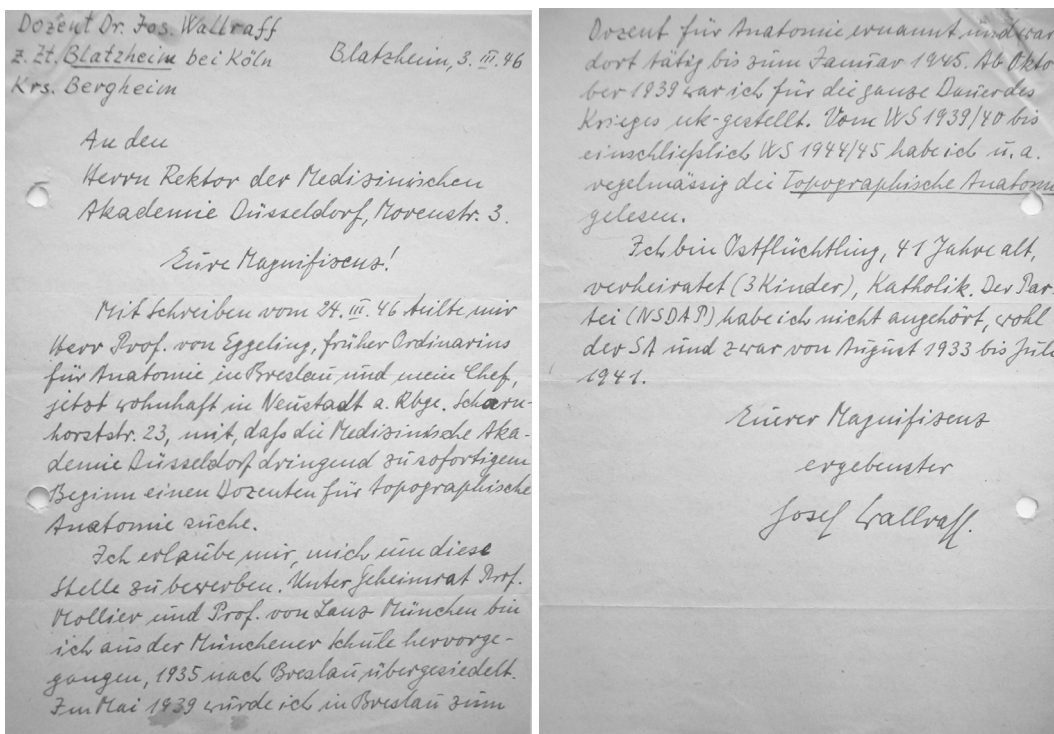 Dozent Dr. Jos. Wallraff
z. Zt. Blatzheim bei Köln
Blatzheim, 3. III. 46
Krs. Bergheim
An den
Herrn Rektor der Medizinischen
Akademie Düsseldorf, Morenstr. 3.
Eure Magnifizenz!
Mit Schreiben vom 24. III. 46 teilte mir
Herr Prof. von Eggeling, früher Ordinarius
für Anatomie in Breslau und mein Chef,
jetzt wohnhaft in Neustadt a. Rbge. Scharn-
horststr. 23, mit, dass die Medizinische Aka-
demie Düsseldorf dringend zu sofortigem
Beginn einen Dozenten für topographische
Anatomie suche.
Ich erlaube mir, mich um diese
Stelle zu bewerben. Unter Geheimrat Prof.
Mollier und Prof. von Lanz München bin
ich aus der Münchener Schule hervorge-
gangen, 1935 nach Breslau übergesiedelt.
Im Mai 1939 wurde ich in Breslau zum
Dozent für Anatomie ernannt und war
dort tätig bis zum Januar 1945. Ab Okto
ber 1939 war ich für die ganze Dauer des
Krieges uk-gestellt. Vom WS 1939/40 bis
einschließlich WS 1944/45 habe ich u. a.
regelmässig die Topographische Anatom
gelesen.
Ich bin Ostflüchtling, 41 Jahre alt,
verheiratet (3 Kinder), Katholik. Der Par-
tei (NSDAP) habe ich nicht angehört, wohl
der SA und zwar von August 1933 bis Juli
1941.
Eurer Magnifizenz
ergebenster
Josef Wallraff.